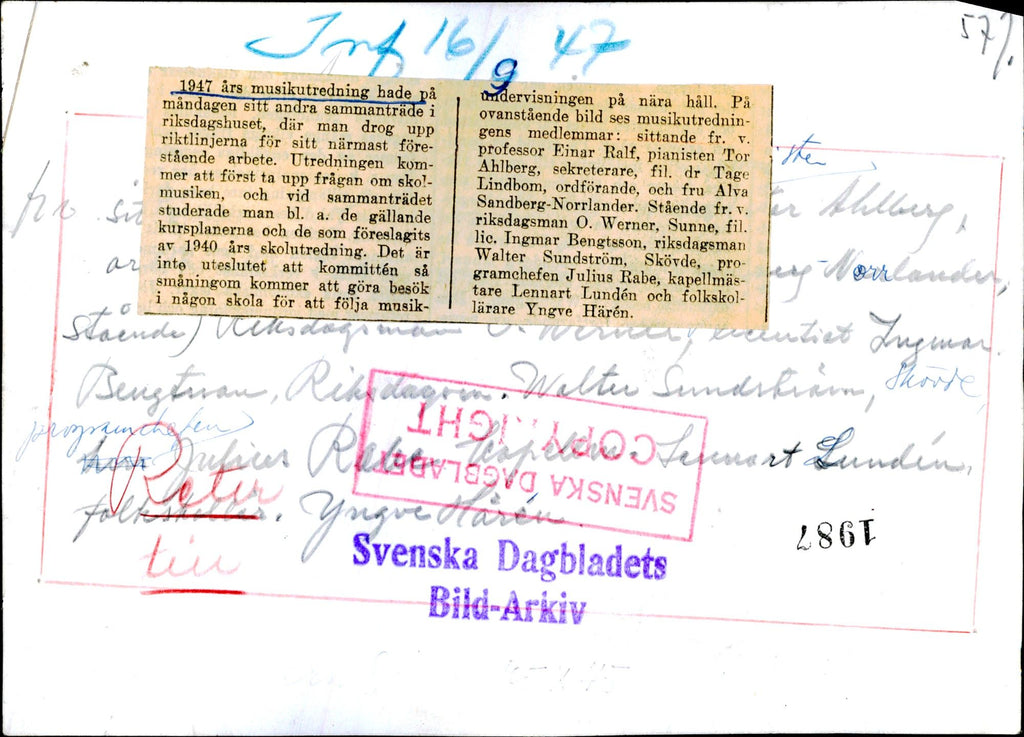 Inf 16/9 47
57/.
1947 års musikutredning hade på
måndagen sitt andra sammanträde i
riksdagshuset, där man drog upp
riktlinjerna för sitt närmast före-
stående arbete. Utredningen kom-
mer att först ta upp frågan om skol-
musiken, och vid sammanträdet
studerade man bl. a. de gällande
kursplanerna och de som föreslagits
av 1940 års skolutredning. Det är
inte uteslutet att kommittén så
småningom kommer att göra besök
i någon skola för att följa musik-
undervisningen på nära håll. På
ovanstående bild ses musikutrednin-
gens medlemmar: sittande fr. v.
professor Einar Ralf, pianisten Tor
Ahlberg, sekreterare, fil. dr Tage
Lindbom, ordförande, och fru Alva
Sandberg-Norrlander. Stående fr. v.
riksdagsman O. Werner, Sunne, fil.
lic. Ingmar Bengtsson, riksdagsman
Walter Sundström, Skövde, pro-
gramchefen Julius Rabe, kapellmäs-
tare Lennart Lundén och folkskol-
lärare Yngve Härén.
fr v sit Ahlberg,
Norrlander,
stående) Riksdagsman O. Werner, licentiat Ingmar
Bengtsson, Riksdagsm. Walter Sundström, Skövde,
programchefen
Julius Rabe, Kapellm. Lennart Lundén,
folkskollär. Yngve Härén.
SVENSKA DAGBLADET
COPYRIGHT
Retur
till
Svenska Dagbladets
Bild-Arkiv
1987